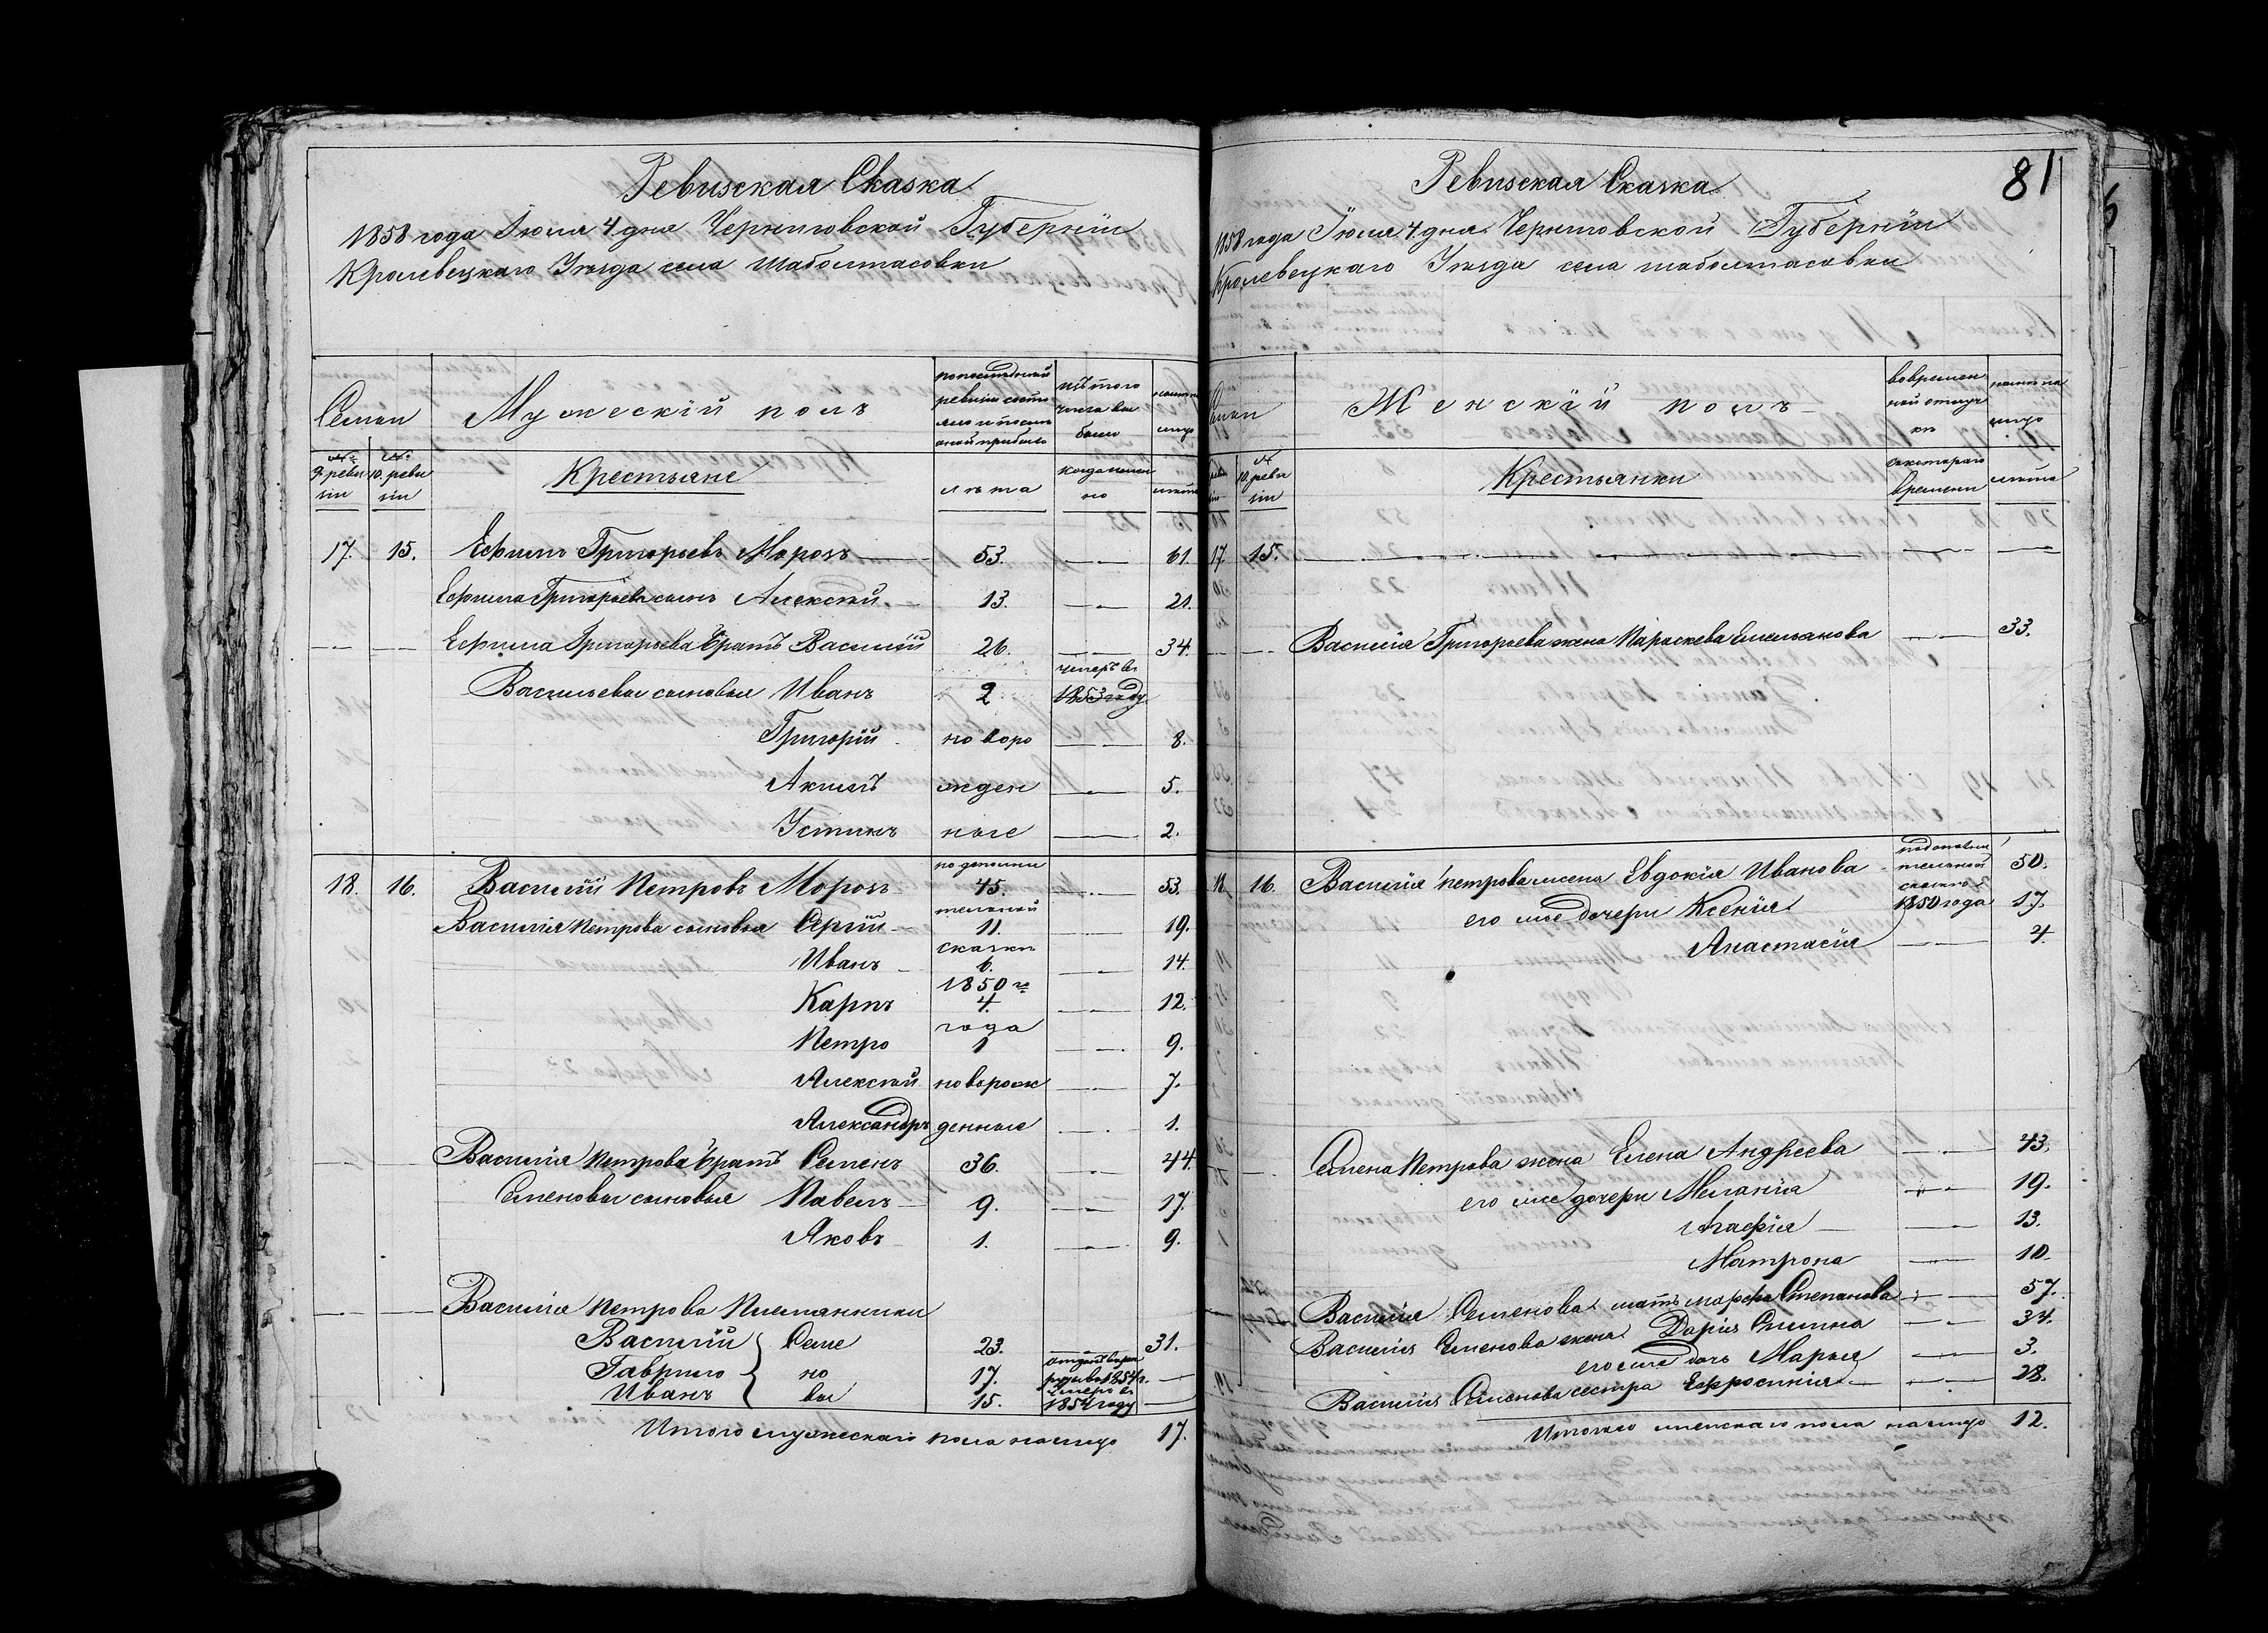 Ревизская Сказка
1858 года Июля 4 дня Черниговской Губерніи
Кролевецкаго Уезда села Шаболтасовки
Семьи
Мужескій полъ
по последней ревизіи состояло и после оной прибыло
изъ того числа выбыло
налицо
№ 9. ревизіи
№ 10. ревизіи
Крестьяне
лета
когда именно
лета
17. 15. Ефимъ Григорьевъ Морозъ 53. 61.
Ефима Григорьева сынъ Алексей 13. 21.
Ефима Григорьева братъ Василій 26. 34.
Васильевы сыновья Иванъ 2 умеръ въ 1853 году
Григорій новоро 8.
Акимъ жден 5.
Устинъ ные 2.
18. 16. Василій Петровъ Морозъ по дополни 45. 53.
Василія Петрова сыновья Сергій тельной 11. 19.
Иванъ сказки 6. 14.
Карпъ 1850 го 4. 12.
Петро года 1 9.
Алексей новорож 7.
Александръ денные 1.
Василія Петрова братъ Семенъ 36. 44.
Семеновы сыновья Павелъ 9. 17.
Яковъ 1. 9.
Василія Петрова Племянники
Василій Семе 23. 31.
Гаврило но 17. 1854 г.
Иванъ вы 15. умеръ въ 1854 году
Итого мужескаго пола налицо 17.
81
Ревизская Сказка
1858 года Июля 4 дня Черниговской Губерніи
Кролевецкаго Уезда села шаболтасовки
Женскій полъ
во временной отлучке
налицо
10. ревизіи
Крестьянки
съ котораго времени
лета
17. 15.
Василія Григорьева жена Параскева Емельянова 33.
16. Василія Петрова жена Евдокія Иванова 50.
его же дочери Ксенія 1850 года 17.
Анастасія 4.
Семена Петрова жена Елена Андреева 43.
его же дочери Меланія 19.
Агафія 13.
Матрона 10.
Василія Семенова мать марфа Степанова 57.
Василія Семенова жена Дарія 34.
его же дочь Марья 3.
Василія Семенова сестра Ефросинія 28.
Итого женскаго пола налицо 12.